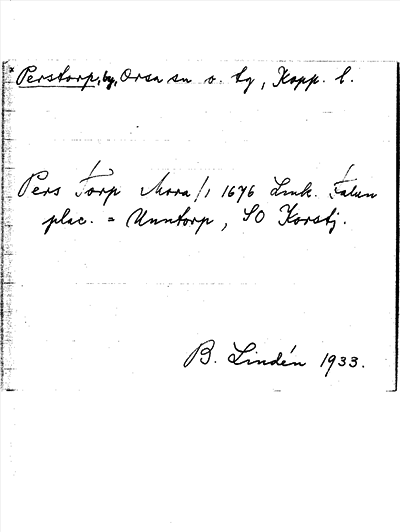 * Perstorp, by, Orsa sn o. tg, Kopp. l.
Pers Torp Mora/1 1676 Lmk. Falun
plac. = Unntorp, SO Korstj.
B. Lindén 1933.